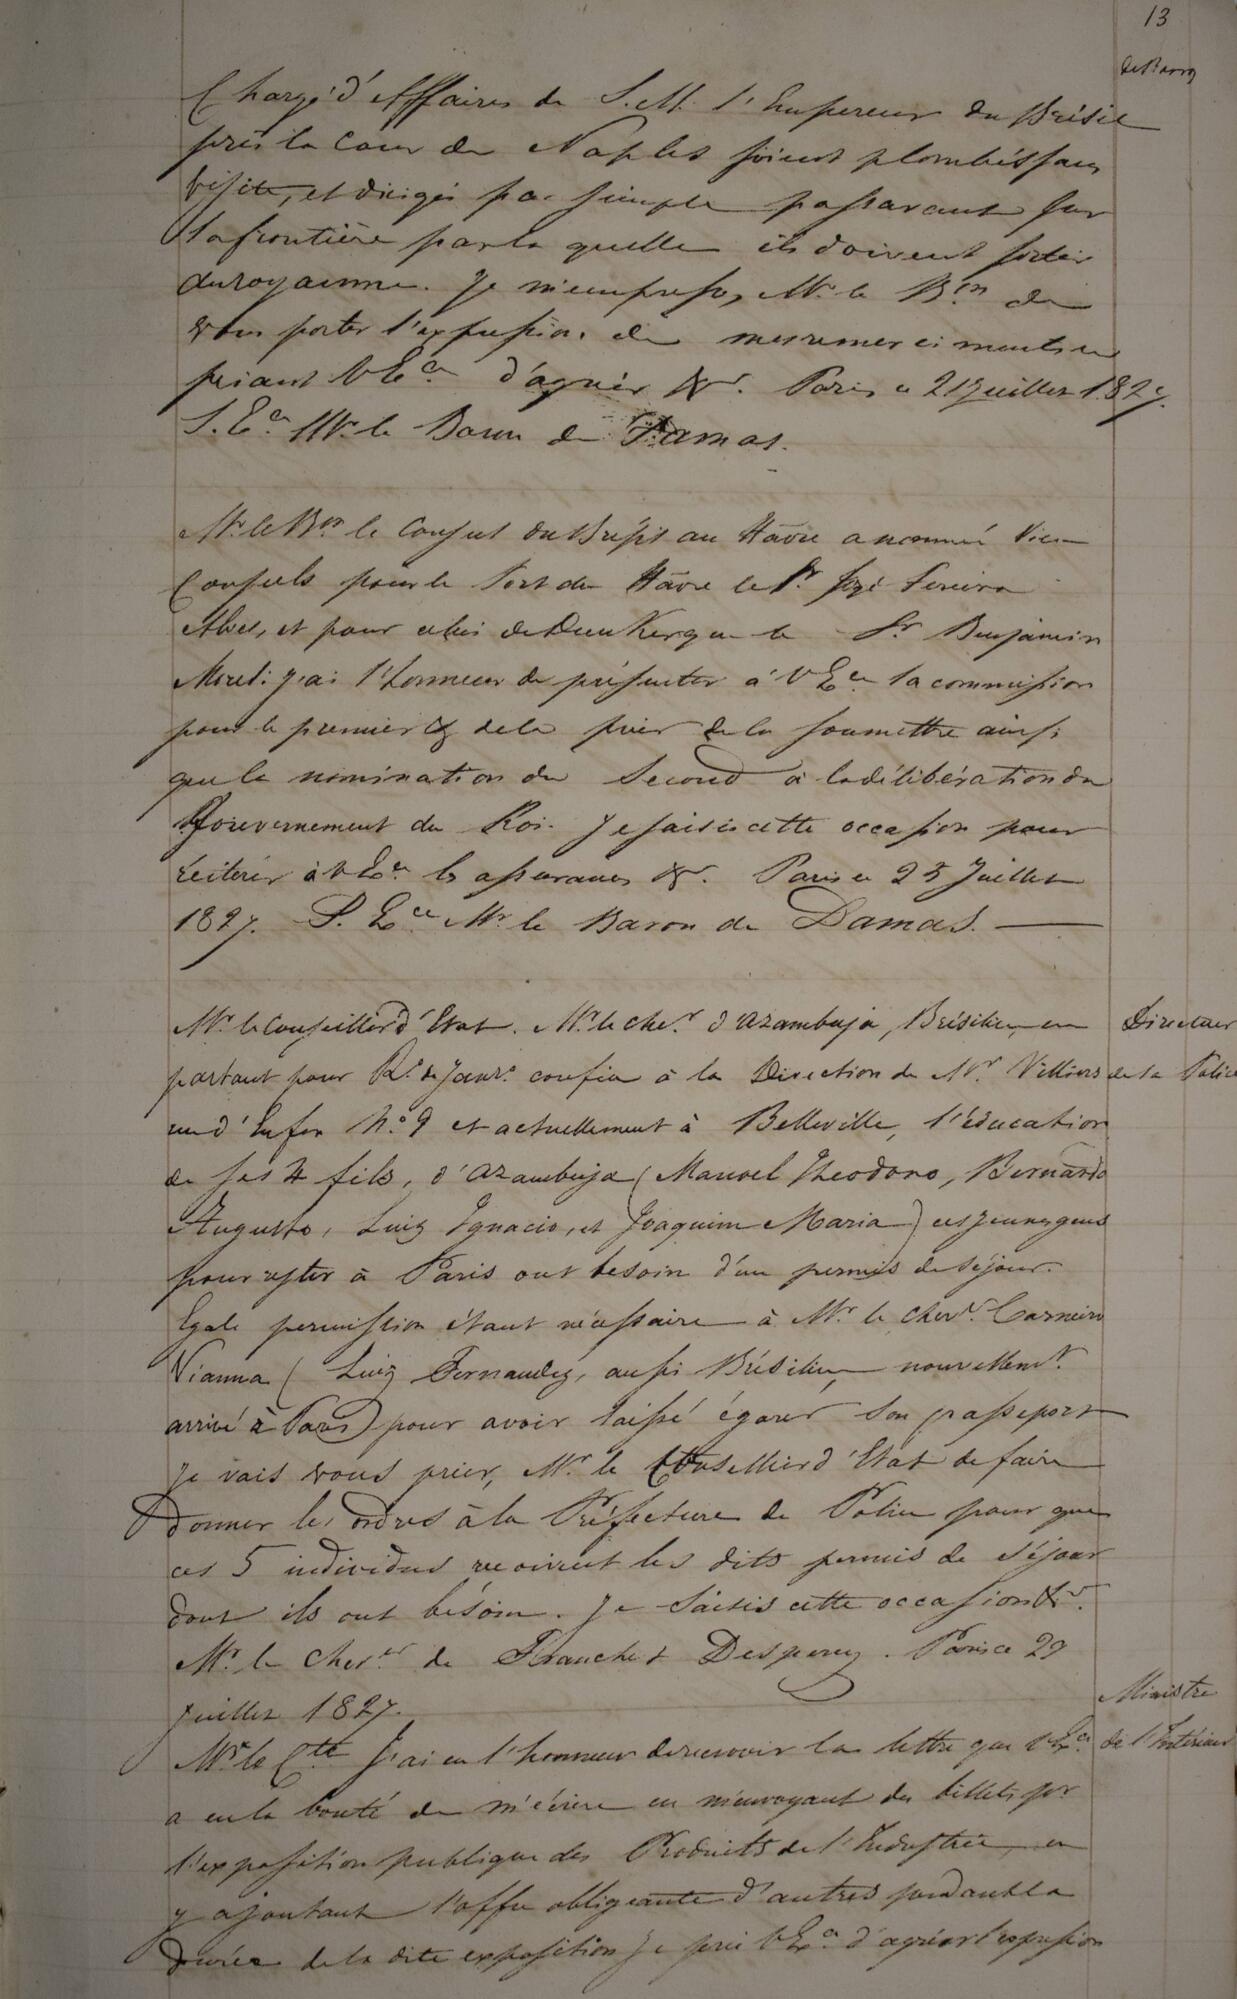 13
de Barros
Chargé d'Affaires de S. M. l'Empereur du Brésil
près la Cour de Naples soient plombés sans
visite, et dirigés par simple passavant sur
la frontière par la quelle ils doivent sortir
du royaume. Je m'empresse, Mr. le Bon de
vous porter l'expression de mes remerciments en
priant V. Ece d'agréer &r. Paris ce 21 Juillet 1827.
S. Ece Mr. le Baron de Damas.
Mr. le Bon le Consul du Brésil au Hâvre a nommé Vice
Consuls pour le Port du Hâvre le Sr. José Pereira
Alves, et pour celui de Dunkerque le Sr Benjamin
Morel: J'ai l'honneur de présenter à V Ece la commission
pour le premier & de la prier de la soumettre ainsi
que la nomination du Second à la délibération du
Gouvernement du Roi. Je saisis cette occasion pour
réitérer à V Ece les assurances &r. Paris ce 25 Juillet
1827. S. Ece Mr le Baron de Damas.
Mr. le Conseiller d'Etat. Mr. le cher. d'Azambuja, Brésilien, en
Directeur
partant pour Ro. de Janro. confia à la Direction de Mr. Villiers
de la Police
rue d'Enfer No. 9 et actuellement à Belleville, l'éducation
de ses 4 fils, d'Azambuja (Manoel Theodoro, Bernardo
Augusto, Luiz Ignacio, et Joaquim Maria) ces jeunes gens
pour rester à Paris ont besoin d'un permis de Séjour.
Egale permission étant nécessaire à Mr. le Cher. Carneiro
Vianna (Luiz Fernandez, aussi Brésilien, nouvellemt.
arrivé à Paris) pour avoir laissé égarer son passeport
Je vais vous prier, Mr. le Conseiller d'Etat de faire
donner les ordres à la Préfecture de Police pour que
ces 5 individus reçoivent les dits permis de séjour
dont ils ont bésoin. Je Saisis cette occasion &r.
Mr. le Cher. de Franchet Desperey. Paris ce 29
Juillet 1827.
Ministre
Mr. le Cte J'ai eu l'honneur de recevoir la lettre que V Ece
de l'Intérieur
a eu la bonté de m'écrire en m'envoyant des billets pr
l'exposition publique des Produits de l'Industrie, en
y ajoutant l'offre obligeante d'autres pendant la
durée de la dite exposition Je prie V Ece d'agréer l'expression